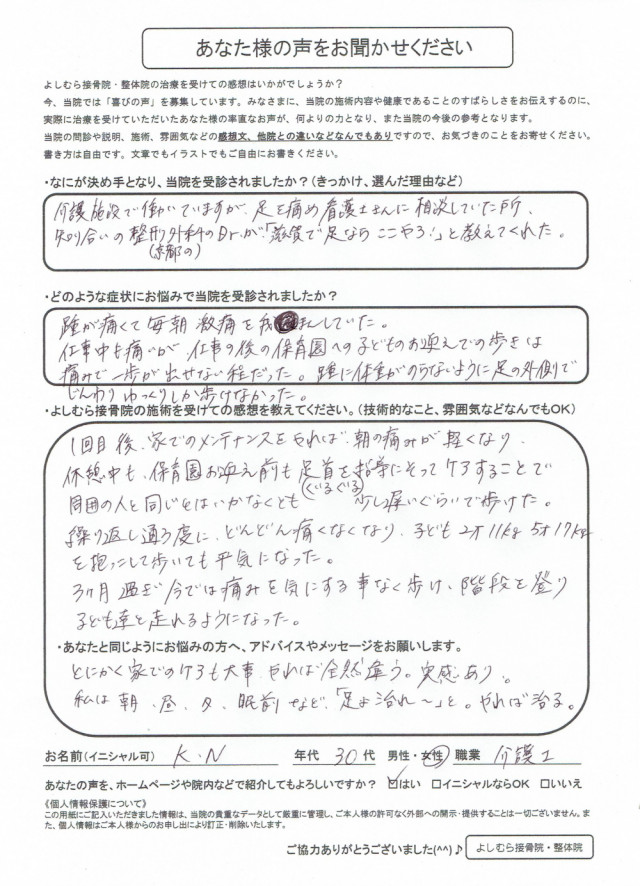 あなた様の声をお聞かせください
よしむら接骨院・整体院の治療を受けての感想はいかがでしょうか？
今、当院では「喜びの声」を募集しています。みなさまに、当院の施術内容や健康であることのすばらしさをお伝えするのに、
実際に治療を受けていただいたあなた様の率直なお声が、何よりの力となり、また当院の今後の参考となります。
当院の問診や説明、施術、雰囲気などの感想文、他院との違いなどなんでもありですので、お気づきのことをお寄せください。
書き方は自由です。文章でもイラストでもご自由にお書きください。
・なにが決め手となり、当院を受診されましたか？（きっかけ、選んだ理由など）
介護施設で働いていますが、足を痛め看護士さんに相談していた所、
知り合いの整形外科のDr.が、「滋賀で足ならここやろ！」と教えてくれた。
（京都の）
・どのような症状にお悩みで当院を受診されましたか？
踵が痛くて毎朝激痛を我まんしていた。
仕事中も痛いが、仕事の後の保育園への子どものお迎えでの歩きは
痛みで一歩が出せない程だった。踵に体重がのらないように足の外側で
じんわりゆっくりしか歩けなかった。
・よしむら接骨院の施術を受けての感想を教えてください。（技術的なこと、雰囲気などなんでもOK）
1回目後、家でのメンテナンスをやれば、朝の痛みが軽くなり、
休憩中も、保育園お迎え前も足首を指導にそってケアすることで
（ぐるぐる）
周囲の人と同じとはいかなくとも 少し遅いぐらいで歩けた。
繰り返し通う度に、どんどん痛くなくなり、子ども 2才 11kg 5才 17kg
を抱っこして歩いても平気になった。
3ヶ月過ぎ今では痛みを気にする事なく歩け、階段を登り
子ども達と走れるようになった。
・あなたと同じようにお悩みの方へ、アドバイスやメッセージをお願いします。
とにかく家でのケアも大事、やれば全然違う。実感あり。
私は朝、昼、夕、眠前など、「足よ治れ〜」と。やれば治る。
お名前（イニシャル可） K.N 年代 30代 男性・女性 職業 介護士
あなたの声を、ホームページや院内などで紹介してもよろしいですか？ ☑はい □イニシャルならOK □いいえ
《個人情報保護について》
この用紙にご記入いただきました情報は、当院の貴重なデータとして厳重に管理し、ご本人様の許可なく外部への開示・提供することは一切ございません。ま
た、個人情報はご本人様からのお申し出により訂正・削除いたします。
ご協力ありがとうございました(^^)♪ よしむら接骨院・整体院